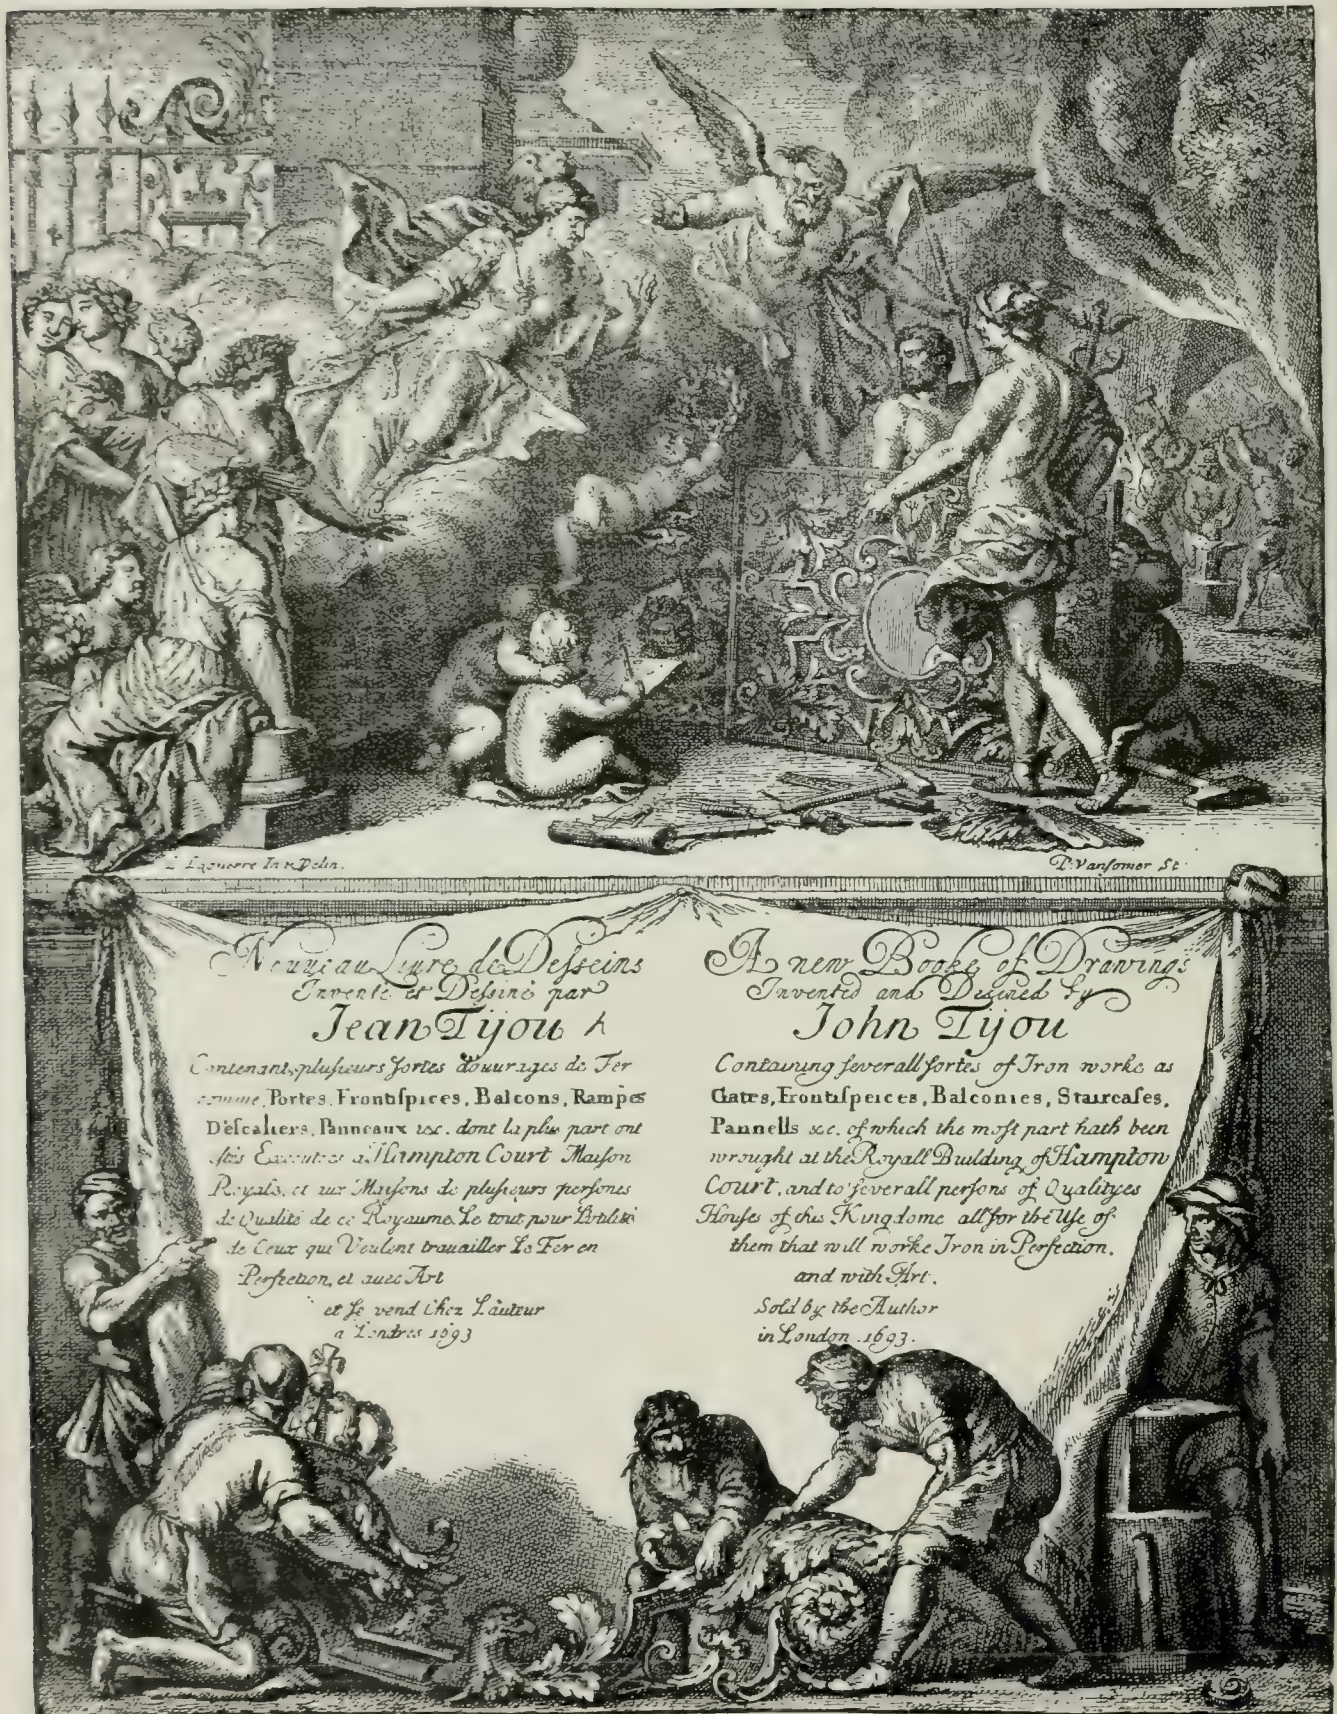 L Laguerre In & Delin.
P. Vansomer Sc
Nouueau Liure de Desseins
Inventé et Dessiné par
Jean Tijou
Contenant, plusieurs sortes d'ouurages de Fer
comme, Portes, Frontispices, Balcons, Rampes
D'escaliers, Panneaux &c. dont la plus part ont
estés Executées a Hampton Court Maison
Royale, et aux Maisons de plusieurs persones
de Qualité de ce Royaume. Le tout pour L'utilité
de Ceux qui Veulent trauailler Le Fer en
Perfection, et auec Art
et se vend Chez L'auteur
a Londres 1693
A new Booke of Drawings
Invented and Desined by
John Tijou
Containing severall sortes of Iron worke as
Gates, Frontispeices, Balconies, Staircases,
Pannells &c. of which the most part hath been
wrought at the Royall Building of Hampton
Court, and to severall persons of Qualityes
Houses of this Kingdome all for the Use of
them that will worke Iron in Perfection,
and with Art.
Sold by the Author
in London . 1693.